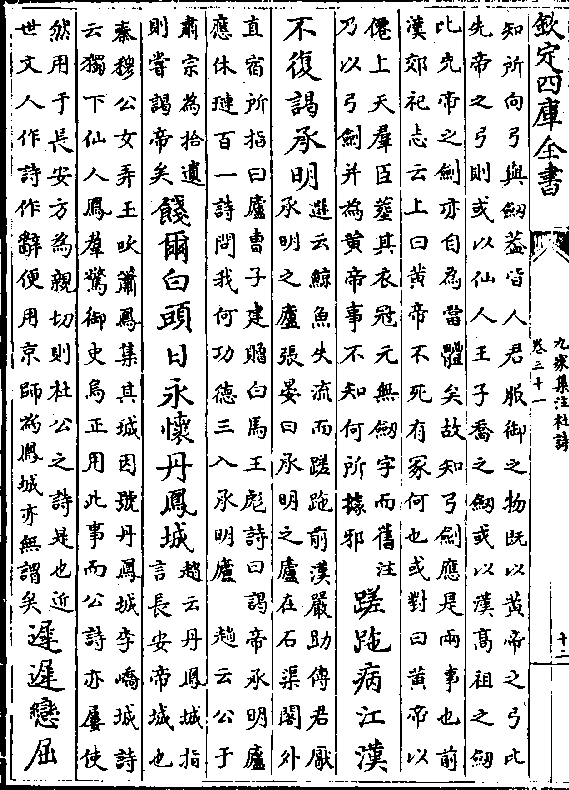 欽定四庫全書
九家集注杜詩
卷三十一
十二
知所向弓與劒葢皆人君服御之物既以黃帝之弓比
先帝之弓則或以仙人王子喬之劒或以漢高祖之劒
比先帝之劒亦自為當體矣故知弓劒應是兩事也前
漢郊祀志云上曰黃帝不死有冢何也或對曰黃帝以
僊上天羣臣葬其衣冠元無劒字而舊注
乃以弓劒并為黃帝事不知何所據邪
蹉跎病江漢
不復謁承明
選云鯨魚失流而蹉跎前漢嚴助傳君厭
承明之廬張晏曰承明之廬在石渠閣外
直宿所指曰廬曹子建贈白馬王彪詩曰謁帝承明廬
應休璉百一詩問我何功德三入承明廬 趙云公于
肅宗為拾遺
則嘗謁帝矣
餞爾白頭日永懷丹鳳城
趙云丹鳳城指
言長安帝城也
秦穆公女弄玉吹簫鳳集其城因號丹鳳城李嶠城詩
云獨下仙人鳳羣驚御史烏正用此事而公詩亦屢使
然用于長安方為親切則杜公之詩是也近
世文人作詩作辭便用京師為鳳城亦無謂矣
遲遲戀屈